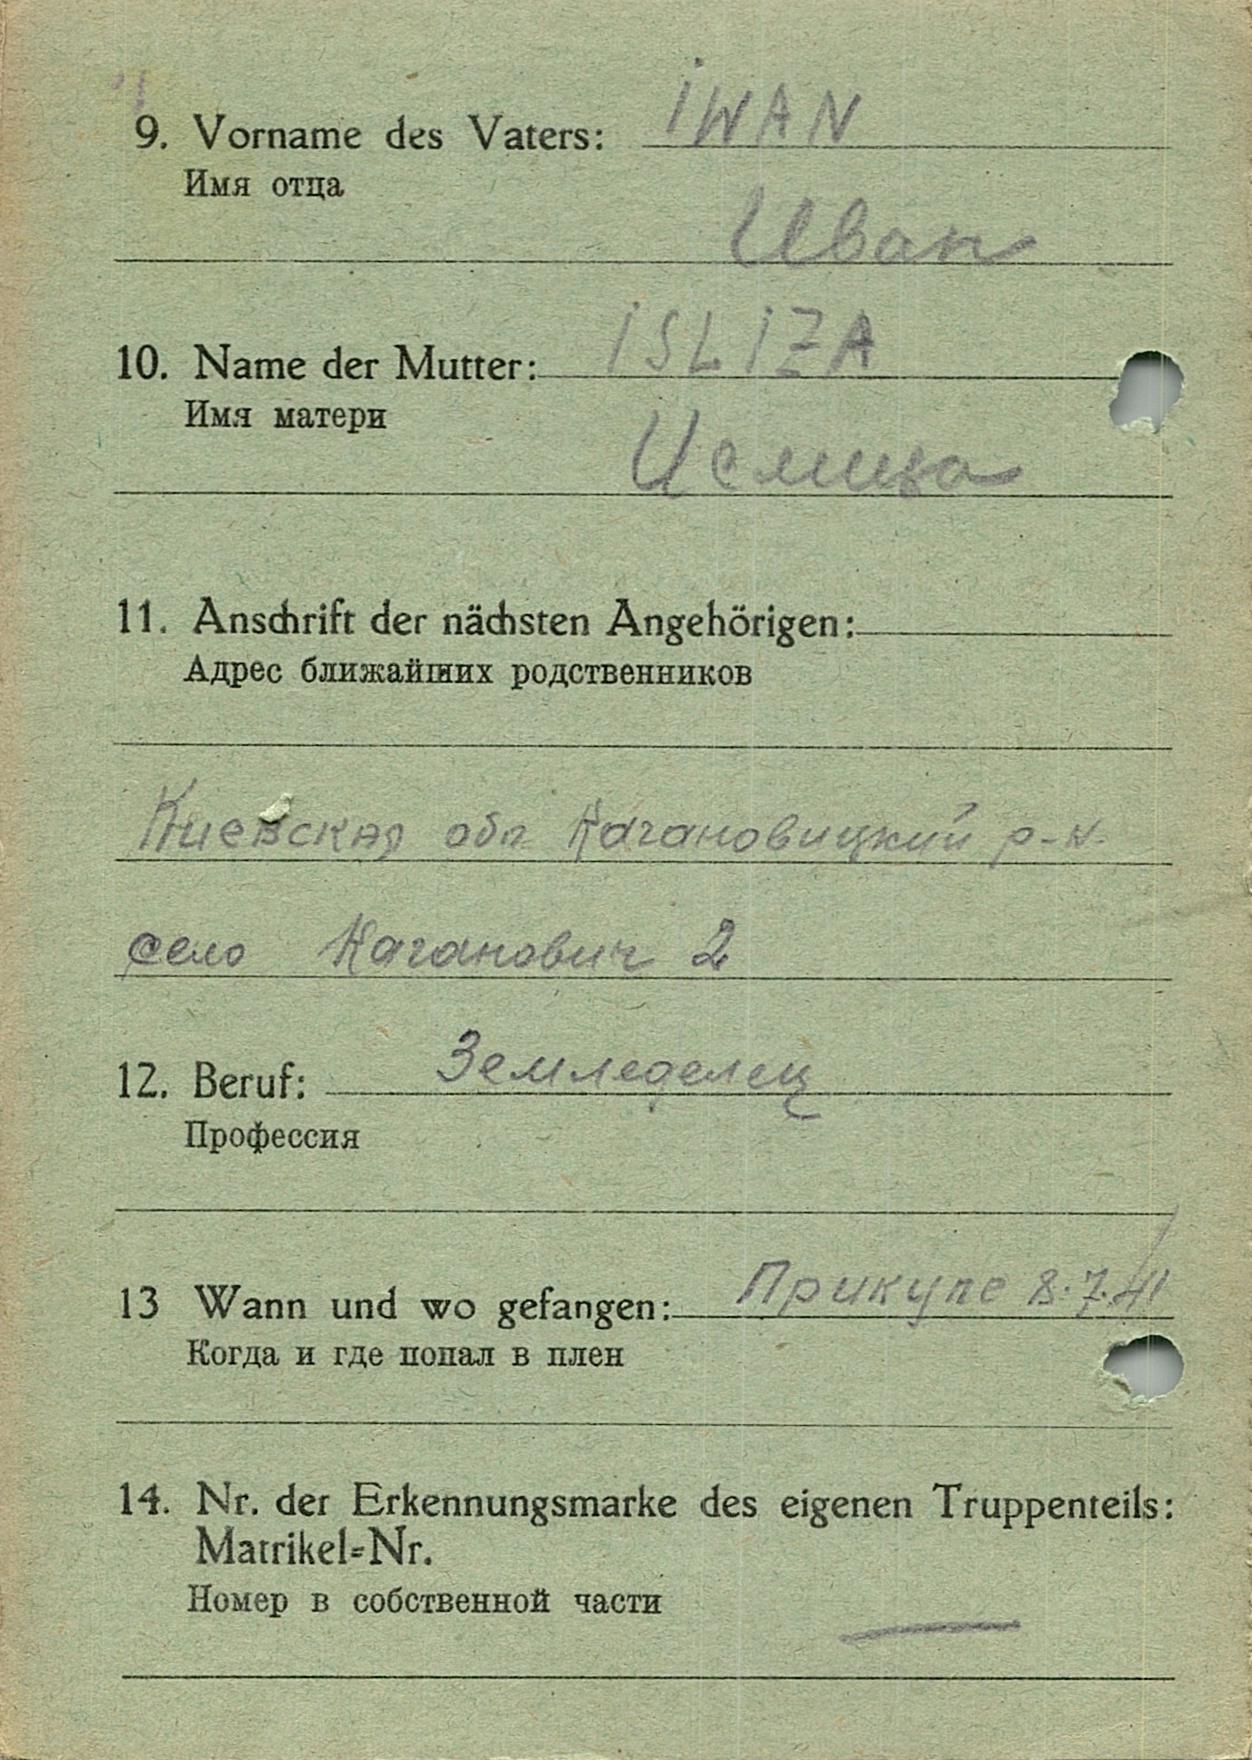 9. Vorname des Vaters: IWAN
Имя отца
Иван
10. Name der Mutter: ISLIZA
Имя матери
Ислиза
11. Anschrift der nächsten Angehörigen:
Адрес ближайших родственников
Киевская обл Кагановицкий р-н.
село Каганович 2
12. Beruf: Земледелец
Профессия
13 Wann und wo gefangen: Прикупе 8.7.41
Когда и где попал в плен
14. Nr. der Erkennungsmarke des eigenen Truppenteils:
Matrikel-Nr.
Номер в собственной части